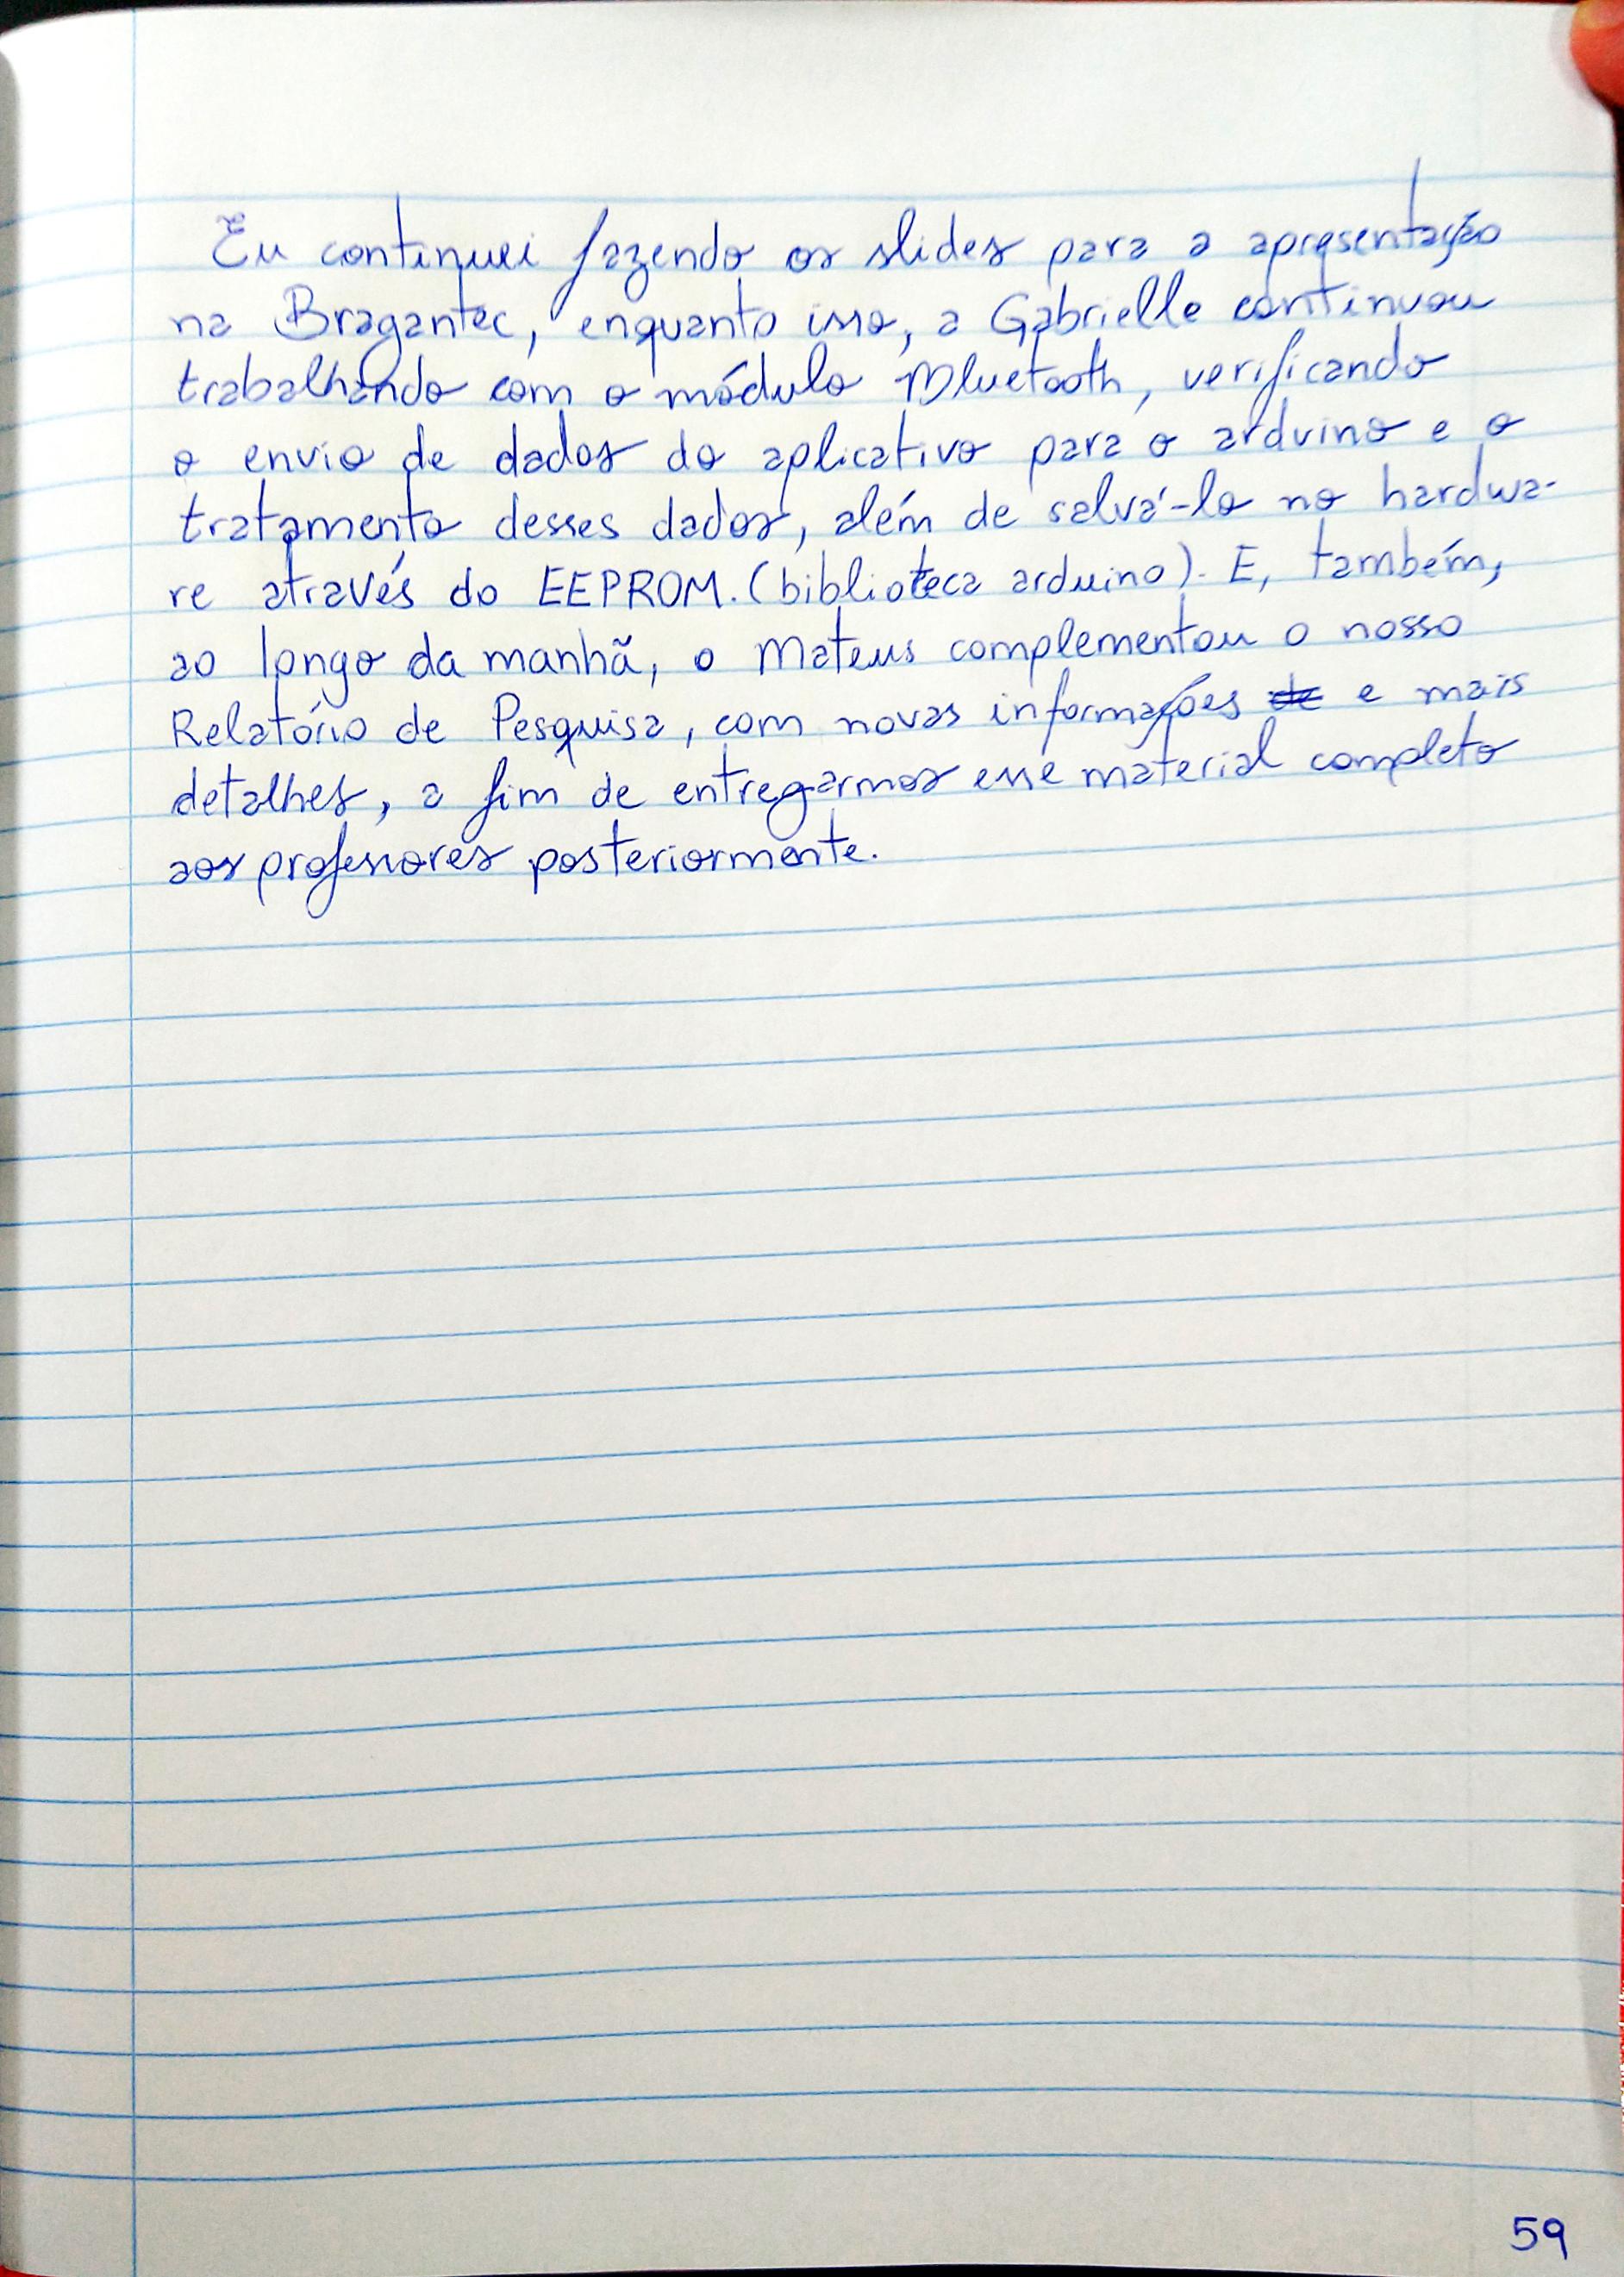 Eu continuei fazendo os slides para a apresentação
na Bragantec, enquanto isso, a Gabrielle continuou
trabalhando com o módulo Bluetooth, verificando
o envio de dados do aplicativo para o arduino e o
tratamento desses dados, além de salvá-lo no hardwa-
re através do EEPROM. (biblioteca arduino). E, também,
ao longo da manhã, o Mateus complementou o nosso
Relatório de Pesquisa, com novas informações de e mais
detalhes, a fim de entregarmos esse material completo
aos professores posteriormente.
59